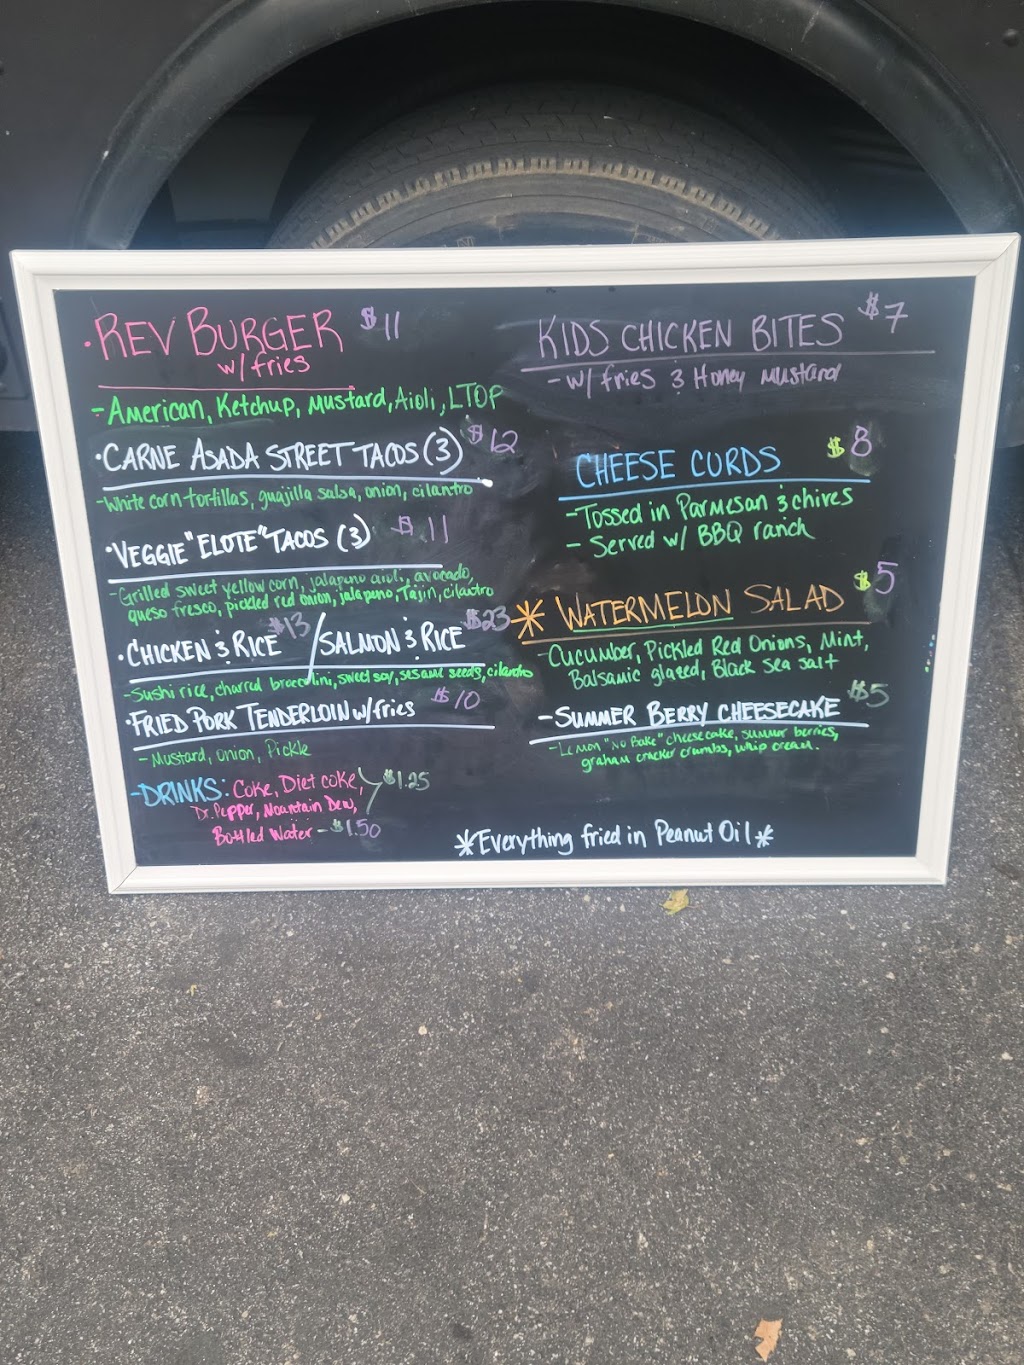 · REV BURGER $11
w/ fries
- American, Ketchup, Mustard, Aioli, LTOP
· CARNE ASADA STREET TACOS (3) $12
- White corn tortillas, guajilla salsa, onion, cilantro
· VEGGIE "ELOTE" TACOS (3) $11
- Grilled sweet yellow corn, jalapeno aioli, avocado,
queso fresco, pickled red onion, jalapeno, Tajin, cilantro
· CHICKEN & RICE $13 / SALMON & RICE $23
- Sushi rice, charred broccolini, sweet soy, sesame seeds, cilantro
· FRIED PORK TENDERLOIN w/ fries $10
- Mustard, onion, Pickle
- DRINKS: Coke, Diet coke, $1.25
Dr. Pepper, Mountain Dew,
Bottled Water - $1.50
KIDS CHICKEN BITES $7
- w/ fries & Honey Mustard
CHEESE CURDS $8
- Tossed in Parmesan & chives
- Served w/ BBQ ranch
* WATERMELON SALAD $5
- Cucumber, Pickled Red Onions, Mint,
Balsamic glazed, Black sea salt
- SUMMER BERRY CHEESECAKE $5
- Lemon "No Bake" cheesecake, summer berries,
graham cracker crumbs, whip cream.
*Everything fried in Peanut Oil*